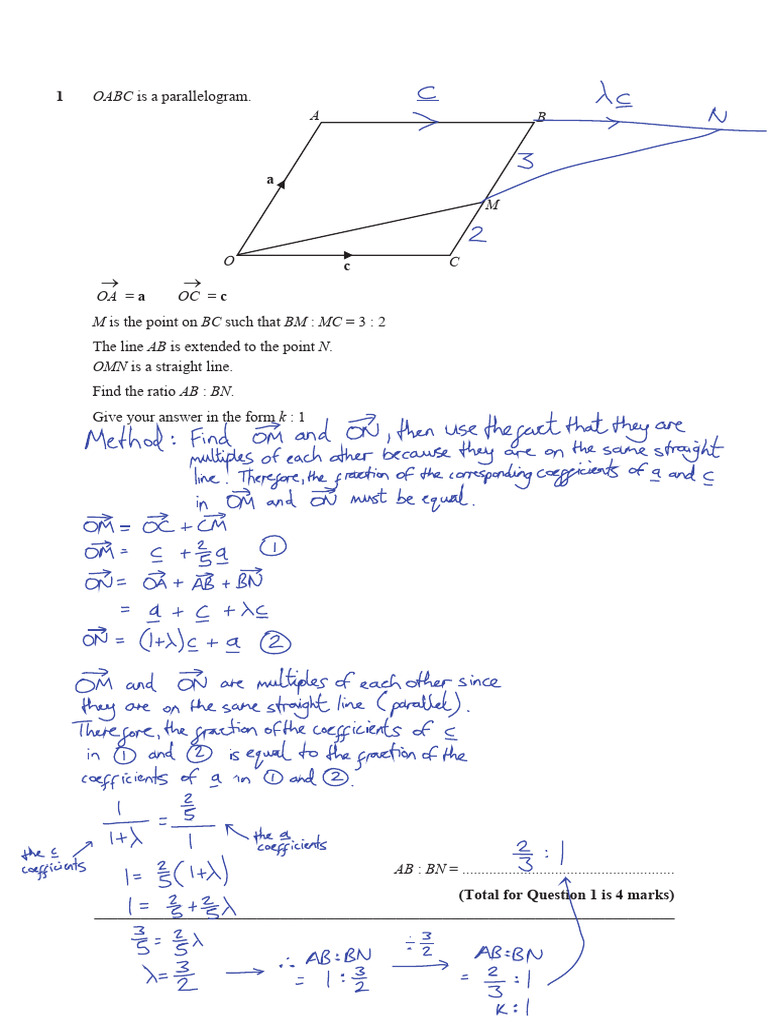 1 OABC is a parallelogram.
c
λc
N
A
B
3
a
M
2
O
c
C
→OA = a →OC = c
M is the point on BC such that BM : MC = 3 : 2
The line AB is extended to the point N.
OMN is a straight line.
Find the ratio AB : BN.
Give your answer in the form k : 1
Method: Find →OM and →ON, then use the fact that they are
multiples of each other because they are on the same straight
line! Therefore, the fraction of the corresponding coefficients of a and c
in →OM and →ON must be equal.
→OM = →OC + →CM
→OM = c + 2/5 a ①
→ON = →OA + →AB + →BN
= a + c + λc
→ON = (1+λ)c + a ②
→OM and →ON are multiples of each other since
they are on the same straight line (parallel).
Therefore, the fraction of the coefficients of c
in ① and ② is equal to the fraction of the
coefficients of a in ① and ②.
1/(1+λ) = (2/5)/1
the c
coefficients
the a
coefficients
1 = 2/5 (1+λ)
1 = 2/5 + 2/5 λ
3/5 = 2/5 λ
λ = 3/2
∴ AB:BN
= 1 : 3/2
÷ 3/2
AB:BN
= 2/3 : 1
k : 1
AB : BN = 2/3 : 1
(Total for Question 1 is 4 marks)